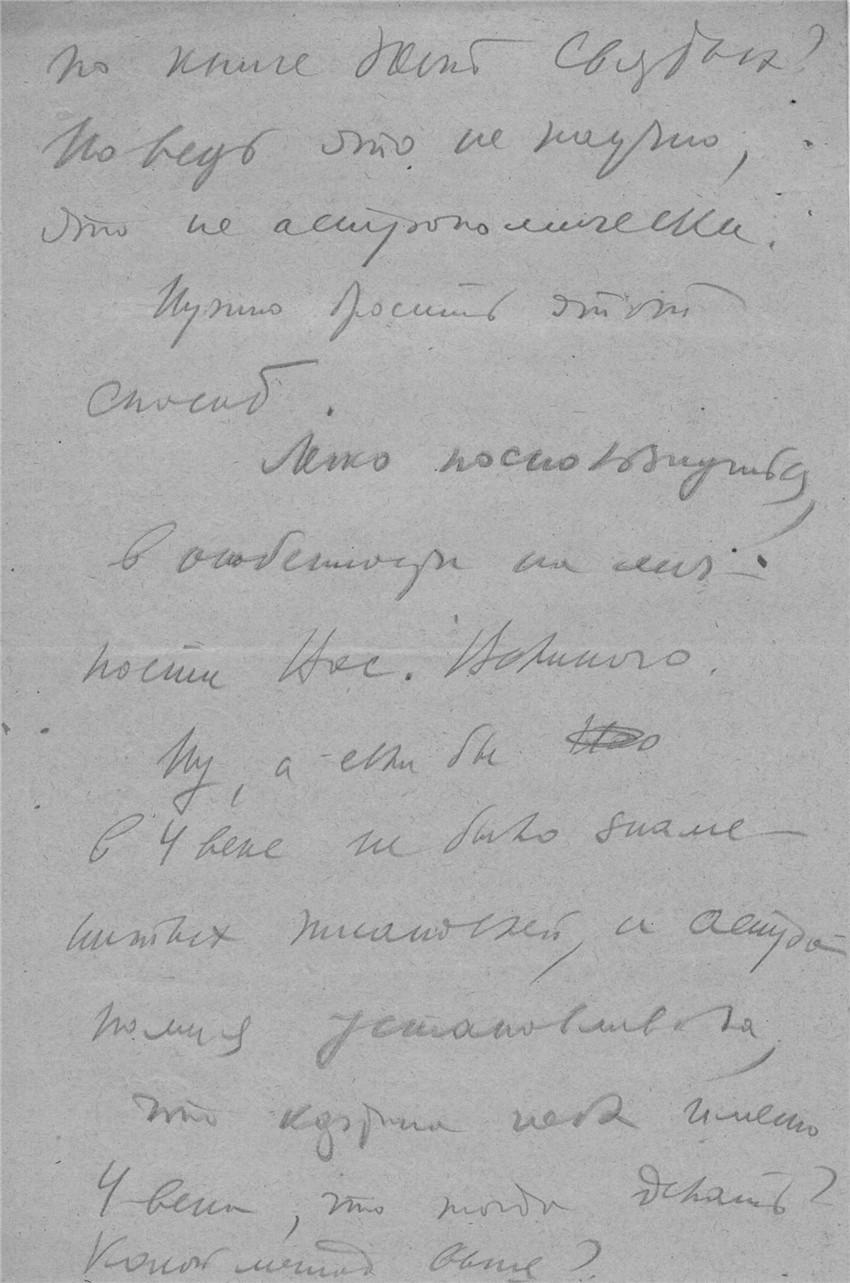 по книге
Но ведь это не научно,
это не астрономически.
Нужно бросить этот
способ.
Легко поскользнуться,
в особенности на лич-
ности Иос. Великого.
Ну, а если бы
в 4 веке не было знаме-
нитых и астро-
номия установила,
что неба именно
4 века, что тогда делать?
Какой метод выше?